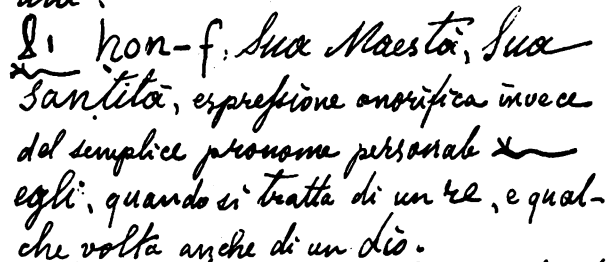 hon-f. Sua Maestà, Sua
Santità, espressione onorifica invece
del semplice pronome personale
egli, quando si tratta di un re, e qual-
che volta anche di un dio.